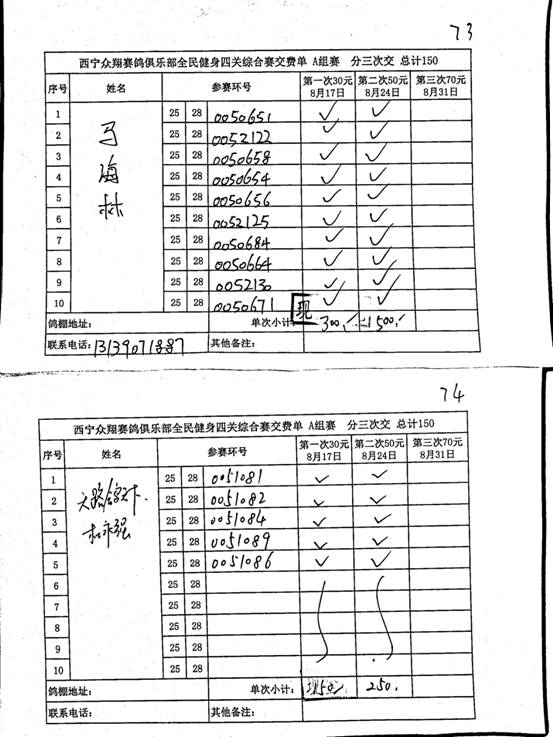 73
西宁众翔赛鸽俱乐部全民健身四关综合赛交费单 A组赛 分三次交 总计150
序号 姓名 参赛环号 第一次30元 8月17日 第二次50元 8月24日 第三次70元 8月31日
马海林
1 25 28 0050651 ✓ ✓
2 25 28 0052122 ✓ ✓
3 25 28 0050658 ✓ ✓
4 25 28 0050654 ✓ ✓
5 25 28 0050656 ✓ ✓
6 25 28 0052125 ✓ ✓
7 25 28 0050684 ✓ ✓
8 25 28 0050664 ✓ ✓
9 25 28 0052130 ✓ ✓
10 25 28 0050671 ✓ ✓
鸽棚地址: 单次小计: 现 300 500
联系电话:13139071887 其他备注:
74
西宁众翔赛鸽俱乐部全民健身四关综合赛交费单 A组赛 分三次交 总计150
序号 姓名 参赛环号 第一次30元 8月17日 第二次50元 8月24日 第三次70元 8月31日
1 25 28 0051081 ✓ ✓
2 25 28 0051082 ✓ ✓
3 25 28 0051084 ✓ ✓
4 25 28 0051089 ✓ ✓
5 25 28 0051086 ✓ ✓
6 25 28
7 25 28
8 25 28
9 25 28
10 25 28
鸽棚地址: 单次小计: 现 250.
联系电话: 其他备注: